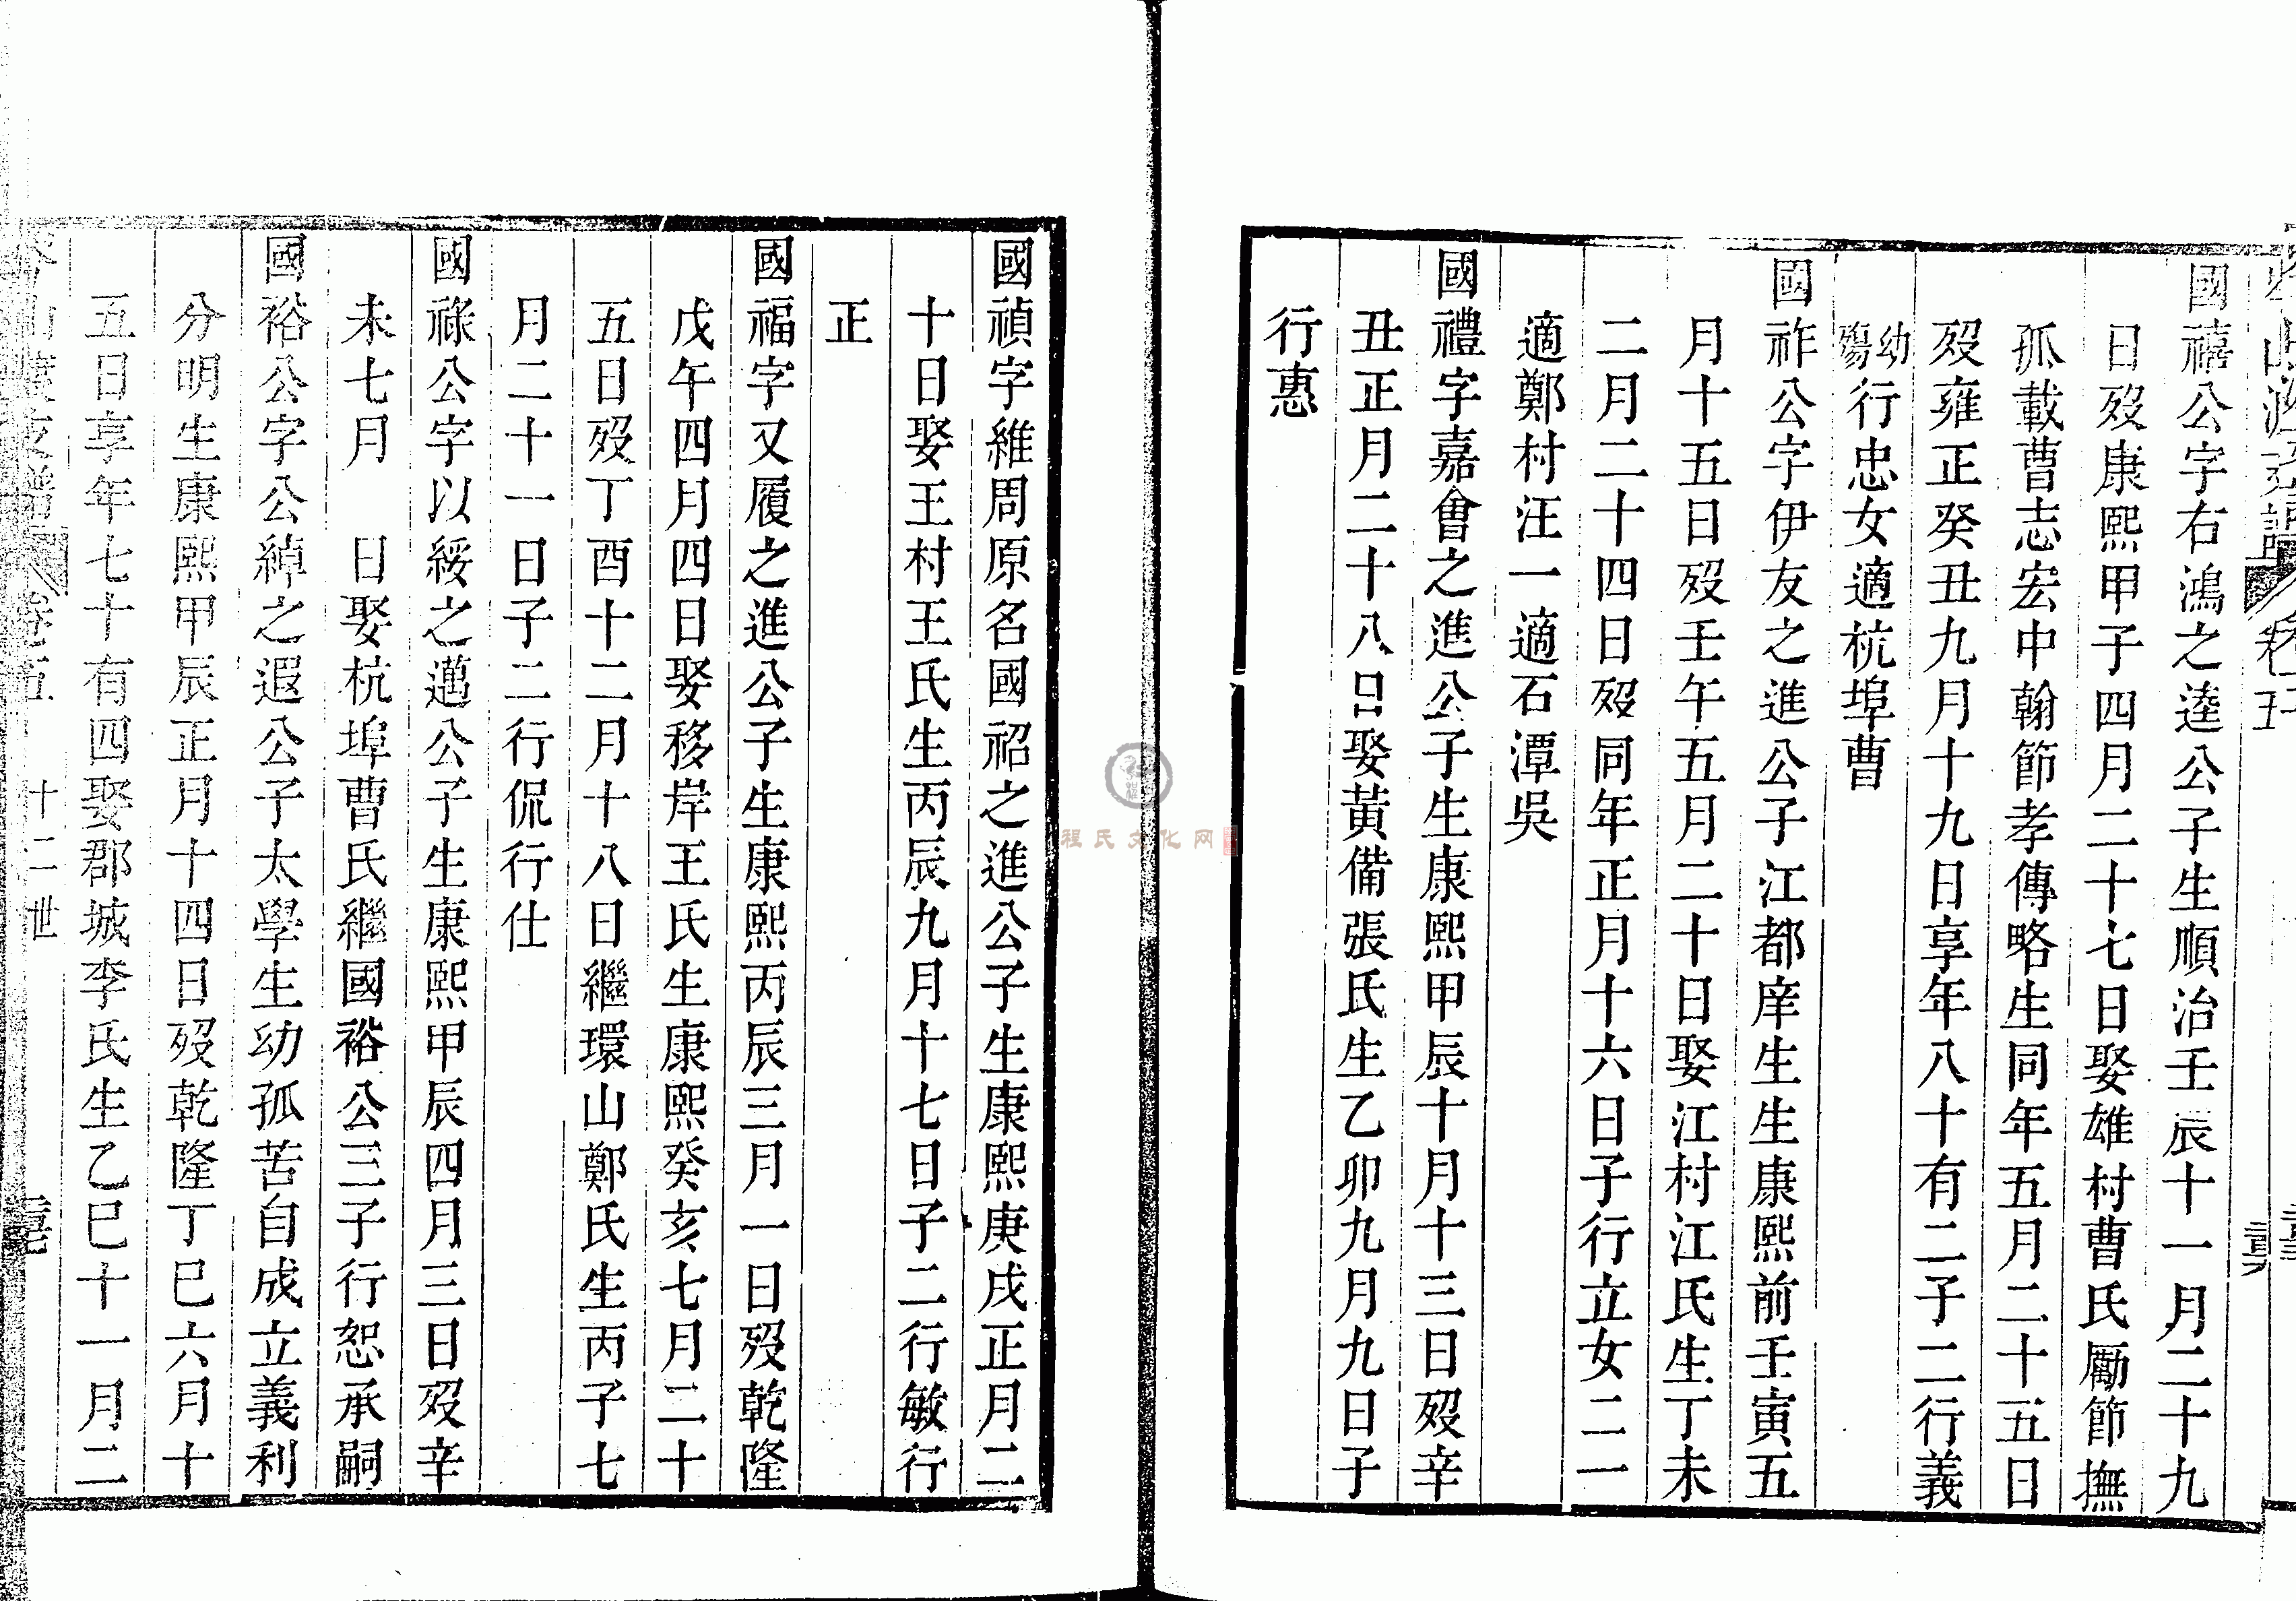 國禧公字右鴻之逵公子生順治壬辰十一月二十九
日歿康熙甲子四月二十七日娶雄村曹氏勵節撫
孤載曹志宏中翰節孝傳略生同年五月二十五日
歿雍正癸丑九月十九日享年八十有二子二行義
幼殤行忠女適杭埠曹
國祚公字伊友之進公子江都庠生生康熙前壬寅五
月十五日歿壬午五月二十日娶江村江氏生丁未
二月二十四日歿同年正月十六日子行立女二一
適鄭村汪一適石潭吳
國禮字嘉會之進公子生康熙甲辰十月十三日歿辛
丑正月二十八日娶黃備張氏生乙卯九月九日子
行惠
國禎字維周原名國祒之進公子生康熙庚戌正月二
十日娶王村王氏生丙辰九月十七日子二行敏行
正
國福字又履之進公子生康熙丙辰三月一日歿乾隆
戊午四月四日娶移岸王氏生康熙癸亥七月二十
五日歿丁酉十二月十八日繼環山鄭氏生丙子七
月二十一日子二行侃行仕
國祿公字以綏之邁公子生康熙甲辰四月三日歿辛
未七月 日娶杭埠曹氏繼國裕公三子行恕承嗣
國裕公字公綽之遐公子太學生幼孤苦自成立義利
分明生康熙甲辰正月十四日歿乾隆丁巳六月十
五日享年七十有四娶郡城李氏生乙巳十一月二
卷五 十二世
程氏文化网